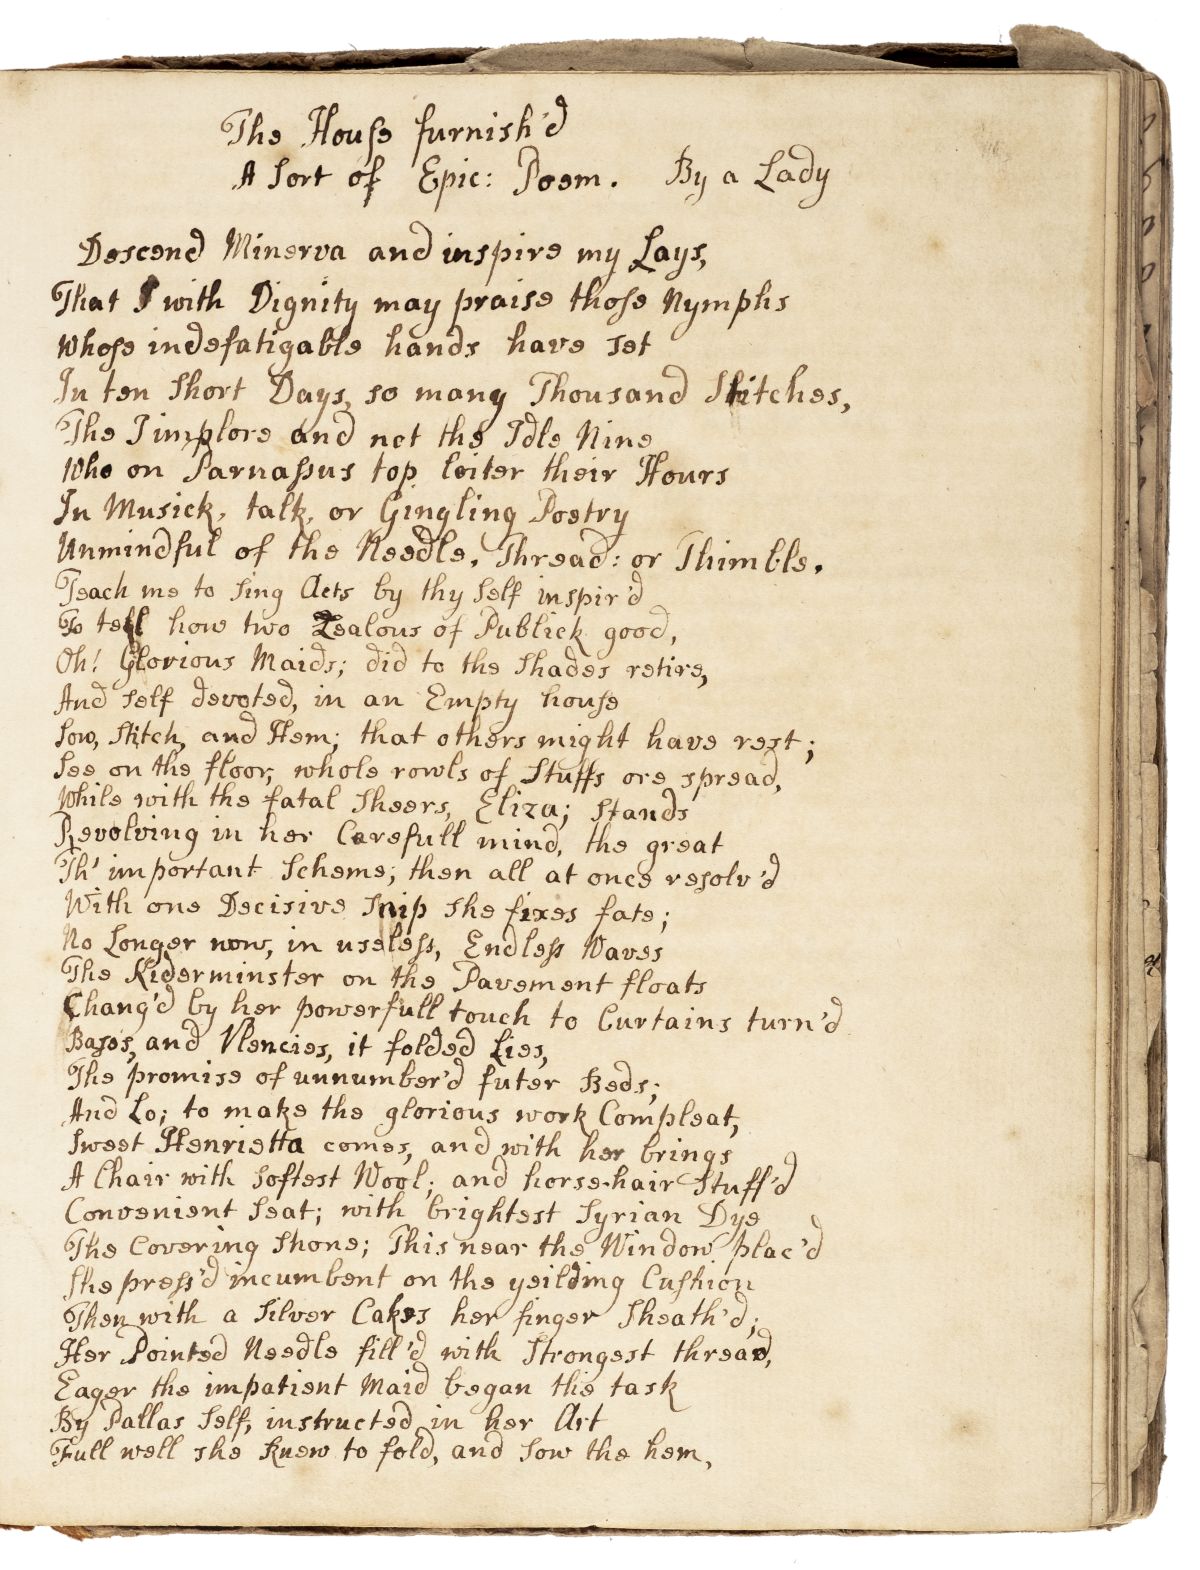 The House furnish'd
A Sort of Epic: Poem. By a Lady
Descend Minerva and inspire my Lays,
That I with Dignity may praise those Nymphs
Whose indefatigable hands have set
In ten Short Days, so many Thousand Stitches,
The I implore and not the Idle Nine
Who on Parnassus top loiter their Hours
In Musick, talk, or Gingling Poetry
Unmindful of the Needle, Thread: or Thimble.
Teach me to Sing Acts by thy Self inspir'd
To tell how two Zealous of Publick good,
Oh! Glorious Maids; did to the Shades retire,
And Self devoted, in an Empty house
Sow, Stitch, and Hem; that others might have rest;
See on the floor, whole rowls of Stuffs are spread,
While with the fatal Sheers, Eliza; Stands
Revolving in her Carefull mind, the great
Th' important Scheme; then all at once resolv'd
With one Decisive Snip she fixes fate;
No Longer now, in useless, Endless Waves
The Kiderminster on the Pavement floats
Chang'd by her powerfull touch to Curtains turn'd
Bases, and Vlencies, it folded Lies,
The promise of unnumber'd futer Beds;
And Lo; to make the glorious work Compleat,
Sweet Henrietta comes, and with her brings
A Chair with Softest Wool; and horse-hair Stuff'd
Convenient Seat; with brightest Syrian Dye
The Covering Shone; This near the Window plac'd
She press'd incumbent on the yeilding Cushion
Then with a Silver Cakes her finger Sheath'd;
Her Pointed Needle fill'd with Strongest thread,
Eager the impatient Maid began the task
By Pallas Self, instructed in her Art
Full well she knew to fold, and Sow the hem,